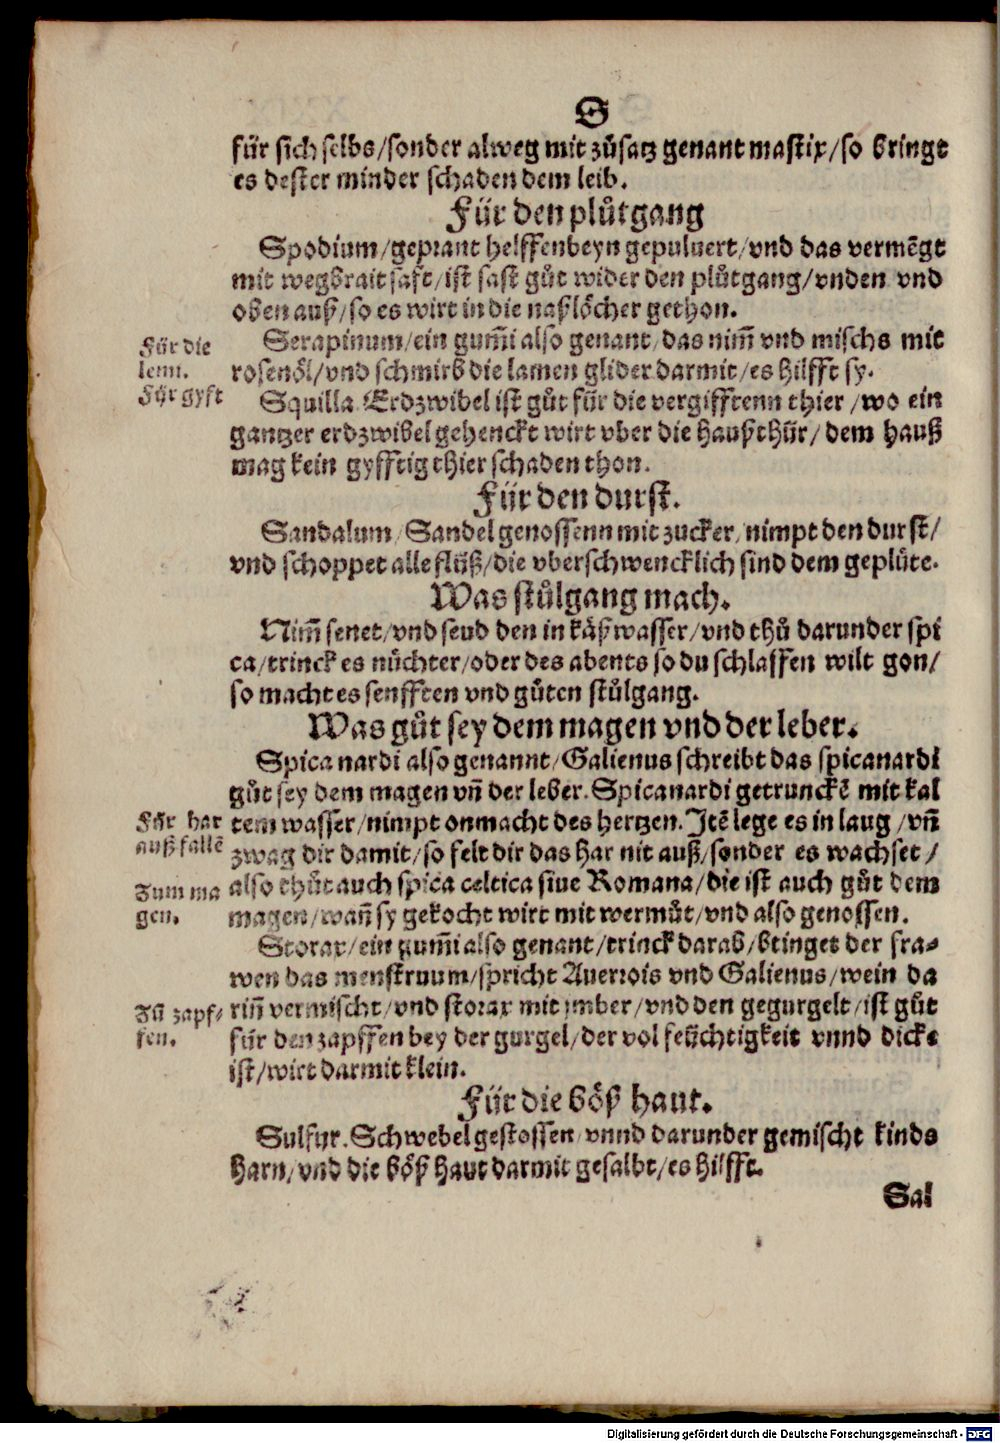 S
für sich selbs/sonder alweg mit zůsatz genant mastix/so bringt
es dester minder schaden dem leib.
Für den plůtgang
Spodium/geprant helffenbeyn gepuluert/vnd das vermẽgt
mit wegbrait saft/ist fast gůt wider den plůtgang/vnden vnd
oben auß/so es wirt in die naßlöcher gethon.
Für die
lemi.
Serapinum/ein gum̃i also genant/das nim̃ vnd mischs mit
rosenöl/vnd schmirb die lamen glider darmit/es hilfft sy.
Für gyft
Squilla Erdzwibel ist gůt für die vergifftenn thier/wo ein
gantzer erdzwibel gehenckt wirt vber die haußthür/dem hauß
mag kein gyfftig thier schaden thon.
Für den durst.
Sandalum/Sandel genossenn mit zucker/nimpt den durst/
vnd schoppet alle flüß/die vberschwencklich sind dem geplüte.
Was stůlgang mach.
Nim̃ senet/vnd seud den in käßwasser/vnd thů darunder spi
ca/trinck es nüchter/oder des abents so du schlaffen wilt gon/
so macht es senfften vnd gůten stůlgang.
Was gůt sey dem magen vnd der leber.
Spica nardi also genannt/Galienus schreibt das spicanardi
gůt sey dem magen vñ der leber. Spicanardi getrunckẽ mit kal
Für har
außfallẽ
tem wasser/nimpt onmacht des hertzen. Itẽ lege es in laug/vñ
zwag dir damit/so felt dir das har nit auß/sonder es wachset/
Zum ma
gen.
also thůt auch spica celtica siue Romana/die ist auch gůt dem
magen/wañ sy gekocht wirt mit wermůt/vnd also genossen.
Storax/ein gum̃i also genant/trinck darab/bringet der fra-
wen das menstruum/spricht Auerrois vnd Galienus/wein da
Zů zapf-
fen.
riñ vermischt/vnd storax mit jmber/vnd den gegurgelt/ist gůt
für den zapffen bey der gurgel/der vol feüchtigkeit vnnd dicke
ist/wirt darmit klein.
Für die böß haut.
Sulfur. Schwebel gestossen/vnnd darunder gemischt kinds
harn/vnd die böß haut darmit gesalbt/es hilfft.
Sal
Digitalisierung gefördert durch die Deutsche Forschungsgemeinschaft - DFG